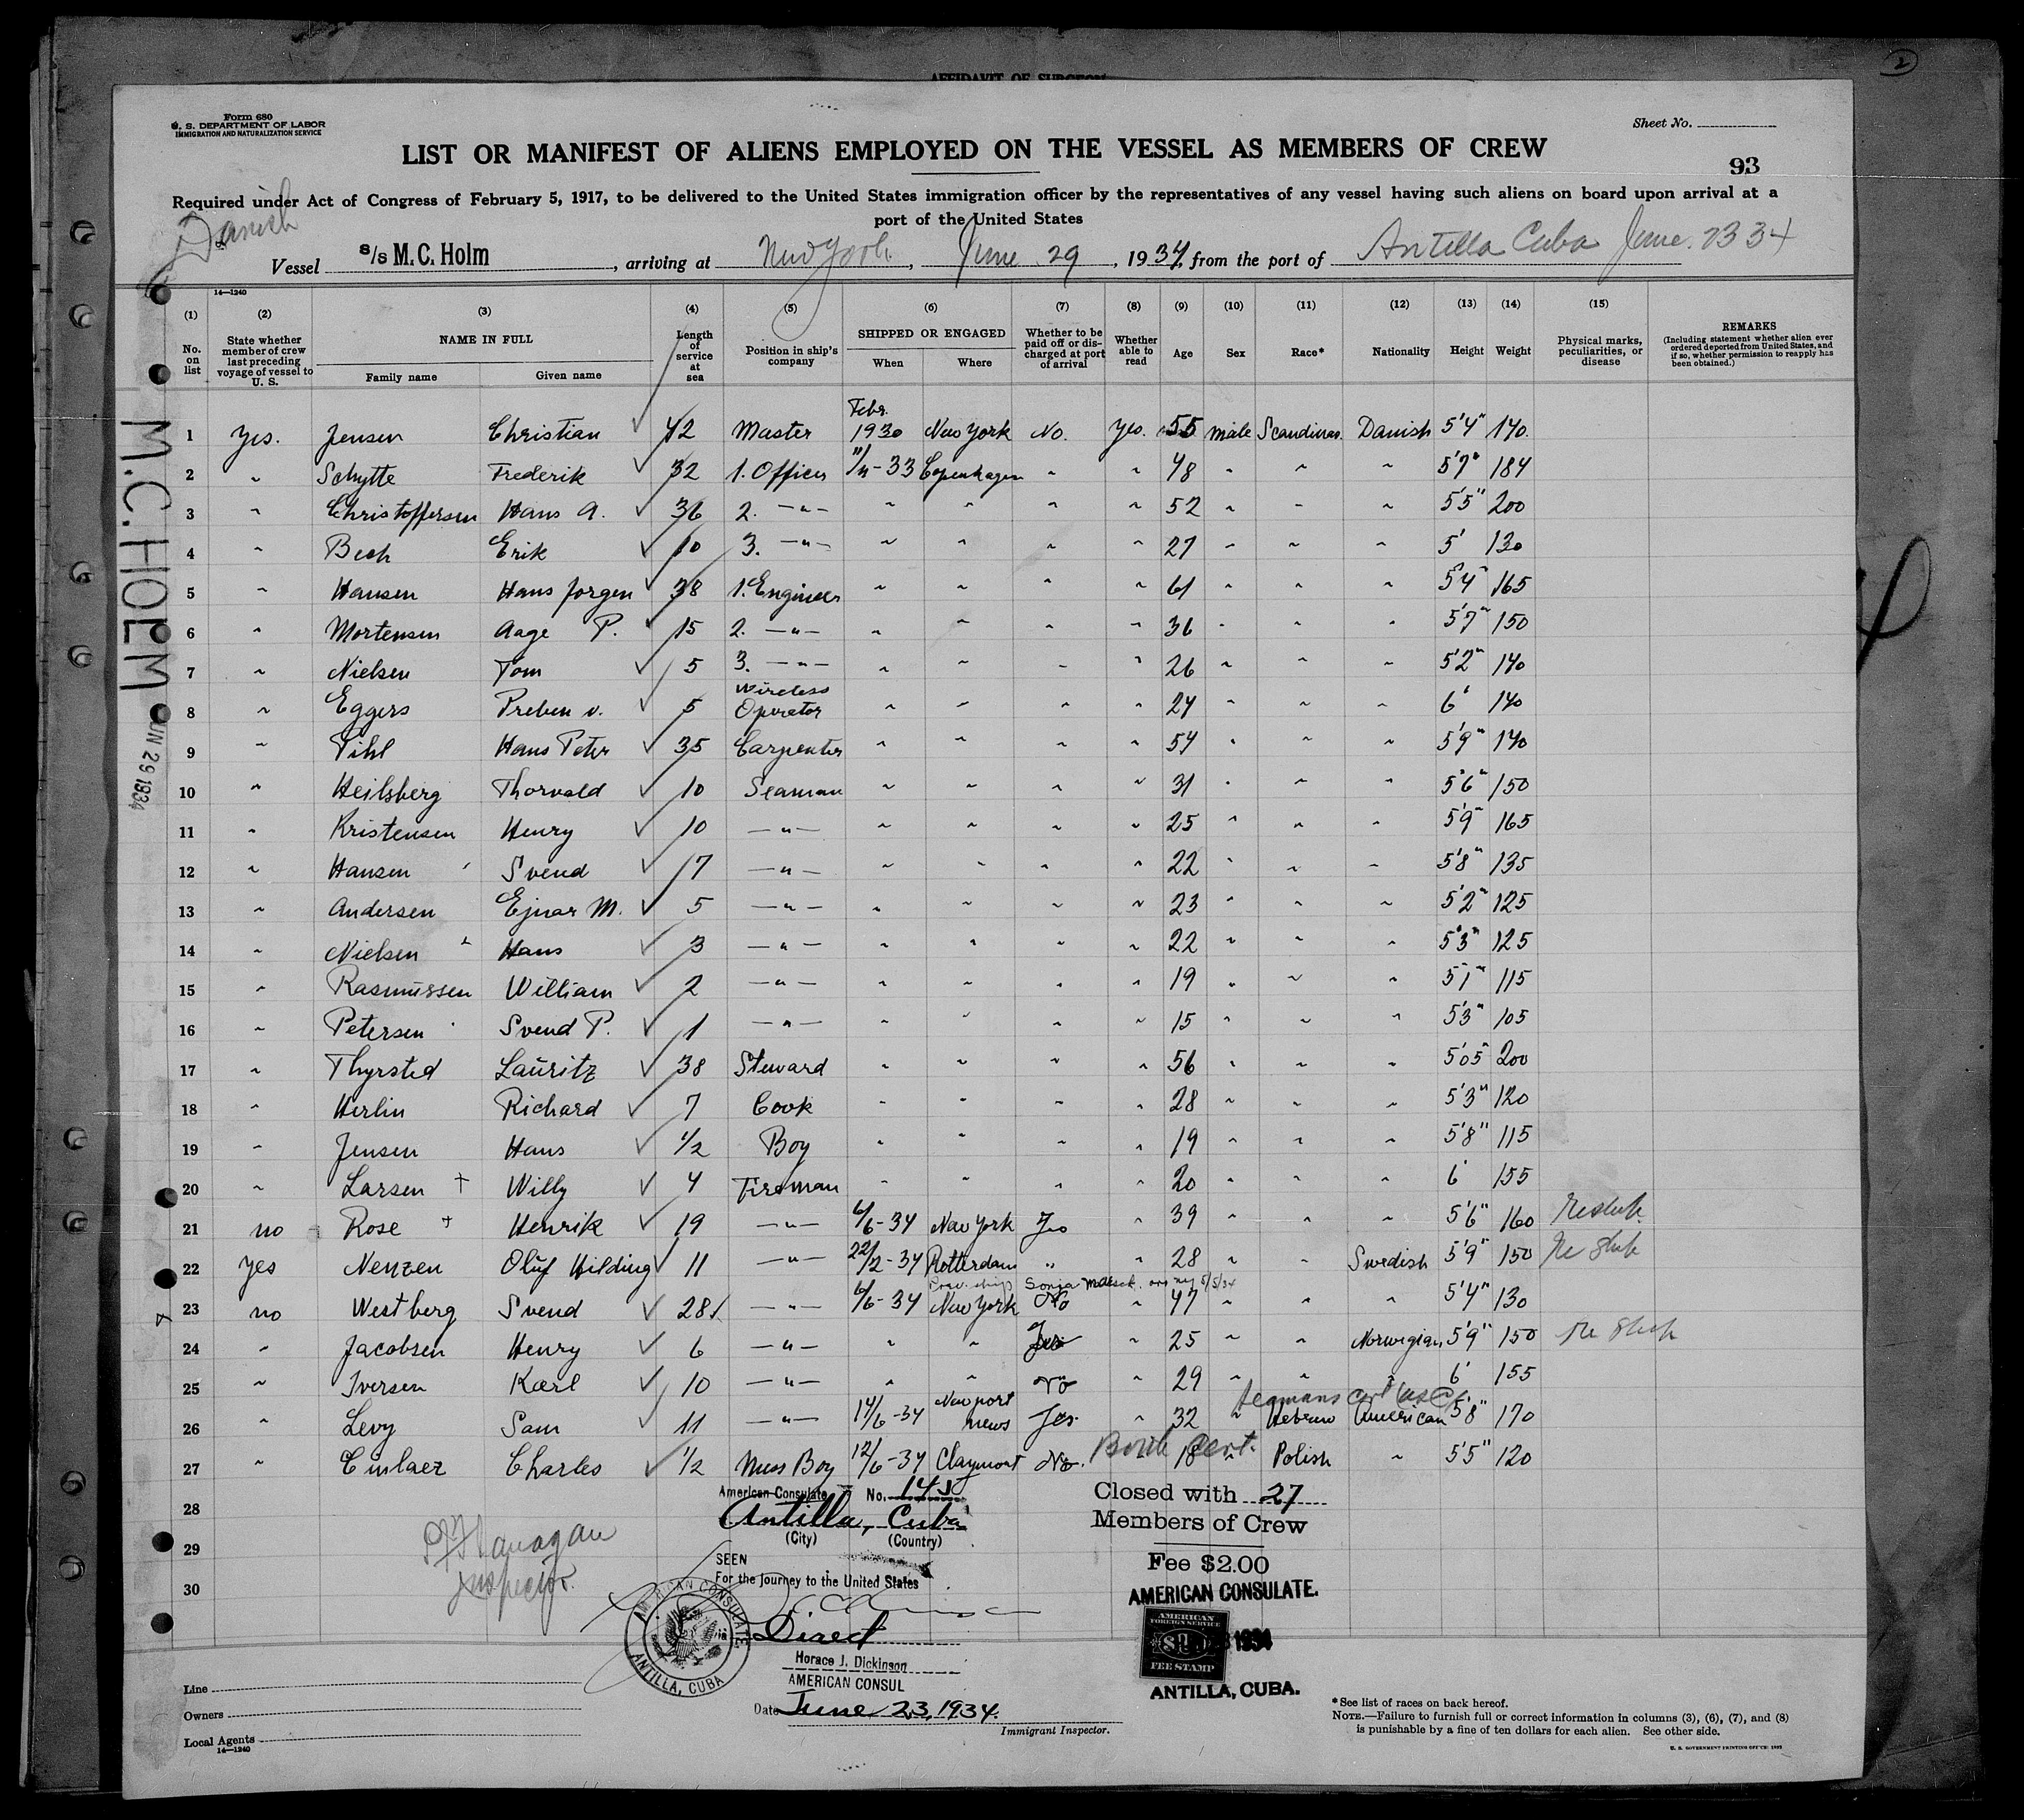 AFFIDAVIT OF SURGEON
2
Form 680
U. S. DEPARTMENT OF LABOR
IMMIGRATION AND NATURALIZATION SERVICE
Sheet No.
LIST OR MANIFEST OF ALIENS EMPLOYED ON THE VESSEL AS MEMBERS OF CREW
93
Required under Act of Congress of February 5, 1917, to be delivered to the United States immigration officer by the representatives of any vessel having such aliens on board upon arrival at a
port of the United States
Danish
Vessel s/s M. C. Holm, arriving at New York, June 29, 1934, from the port of Antilla Cuba June 23 34
14—1240
(1) (2) (3) (4) (5) (6) (7) (8) (9) (10) (11) (12) (13) (14) (15)
No. on list
State whether member of crew last preceding voyage of vessel to U. S.
NAME IN FULL
Family name
Given name
Length of service at sea
Position in ship's company
SHIPPED OR ENGAGED
When
Where
Whether to be paid off or discharged at port of arrival
Whether able to read
Age
Sex
Race*
Nationality
Height
Weight
Physical marks, peculiarities, or disease
REMARKS
(Including statement whether alien ever ordered deported from United States, and if so, whether permission to reapply has been obtained.)
1 Yes. Jensen Christian ✓ 42 Master Febr. 1930 New York No. Yes. 55 male Scandinav. Danish 5'4" 140.
2 " Schytte Frederik ✓ 32 1. Officer 11/11-33 Copenhagen " " 48 " " " 5'7" 184
3 " Christoffersen Hans A. ✓ 36 2. —"— " " " " 52 " " " 5'5" 200
4 " Bech Erik ✓ 10 3. —"— " " " " 27 " " " 5' 130
5 " Hansen Hans Jorgen ✓ 38 1. Engineer " " " " 61 " " " 5'4" 165
6 " Mortensen Aage P. ✓ 15 2. —"— " " " " 36 " " " 5'7" 150
7 " Nielsen Tom ✓ 5 3. —"— " " " " 26 " " " 5'2" 140
8 " Eggers Preben v. ✓ 5 Wireless Operator " " " " 24 " " " 6' 140
9 " Pihl Hans Peter ✓ 35 Carpenter " " " " 54 " " " 5'9" 140
10 " Heilsberg Thorvald ✓ 10 Seaman " " " " 31 " " " 5'6" 150
11 " Kristensen Henry ✓ 10 —"— " " " " 25 " " " 5'9" 165
12 " Hansen Svend ✓ 7 —"— " " " " 22 " " " 5'8" 135
13 " Andersen Ejnar M. ✓ 5 —"— " " " " 23 " " " 5'2" 125
14 " Nielsen Hans ✓ 3 —"— " " " " 22 " " " 5'3" 125
15 " Rasmussen William ✓ 2 —"— " " " " 19 " " " 5'1" 115
16 " Petersen Svend P. ✓ 1 —"— " " " " 15 " " " 5'3" 105
17 " Thyrsted Lauritz ✓ 38 Steward " " " " 56 " " " 5'05" 200
18 " Herlin Richard ✓ 7 Cook " " " " 28 " " " 5'3" 120
19 " Jensen Hans ✓ 1/2 Boy " " " " 19 " " " 5'8" 115
20 " Larsen + Willy ✓ 4 Fireman " " " " 20 " " " 6' 155
21 no Rose + Henrik ✓ 19 —"— 6/6-34 New York Yes " 39 " " " 5'6" 160 Reship.
22 yes Nenzen Oluf Hilding ✓ 11 —"— 22/2-34 Rotterdam " " 28 " " Swedish 5'9" 150 Re Ship
Prev. ship Sonja Maersk arr ny 5/5/34
23 no Westberg Svend ✓ 28 —"— 6/6-34 New York No " 47 " " " 5'4" 130
24 " Jacobsen Henry ✓ 6 —"— " " Yes " 25 " " Norwegian 5'9" 150 Re Ship
25 " Iversen Karl ✓ 10 —"— " " no " 29 " " " 6' 155
Seamans cert
26 " Levy Sam ✓ 11 —"— 14/6-34 Newport News Yes " 32 " Hebrew American 5'8" 170
Birth Cert.
27 " Charles ✓ 1/2 Mess Boy 12/6-34 Claymont No. " 18 " Polish " 5'5" 120
28
29
30
M.C. HOLM
JUN 29 1934
Flanagan
Inspector.
American Consulate No. 145
Antilla, Cuba
(City) (Country)
SEEN
For the journey to the United States
Direct
Horace J. Dickinson
AMERICAN CONSUL
Date June 23, 1934.
AMERICAN CONSULATE,
ANTILLA, CUBA
Closed with 27
Members of Crew
Fee $2.00
AMERICAN CONSULATE.
AMERICAN FOREIGN SERVICE
FEE STAMP
1934
ANTILLA, CUBA.
Line
Owners
Local Agents
14—1240
Immigrant Inspector.
*See list of races on back hereof.
NOTE.—Failure to furnish full or correct information in columns (3), (6), (7), and (8)
is punishable by a fine of ten dollars for each alien. See other side.